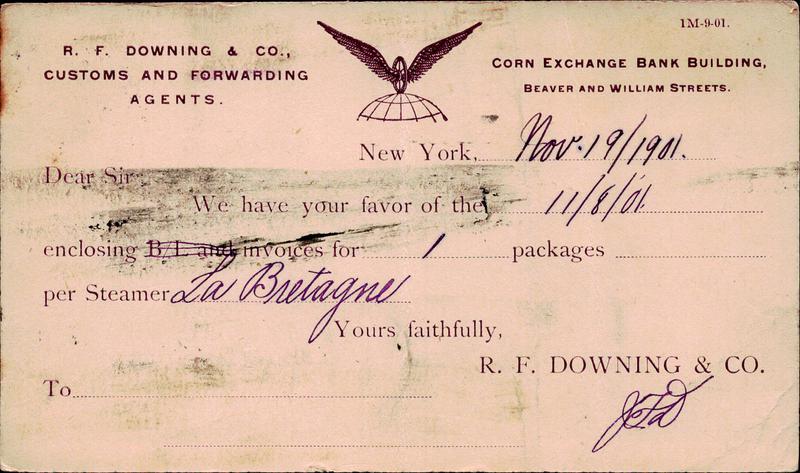 1M-9-01.
R. F. DOWNING & CO.,
CUSTOMS AND FORWARDING
AGENTS.
CORN EXCHANGE BANK BUILDING,
BEAVER AND WILLIAM STREETS.
New York, Nov. 19/1901.
Dear Sir:
We have your favor of the 11/8/01
enclosing B/L and invoices for 1 packages
per Steamer La Bretagne
Yours faithfully,
R. F. DOWNING & CO.
To